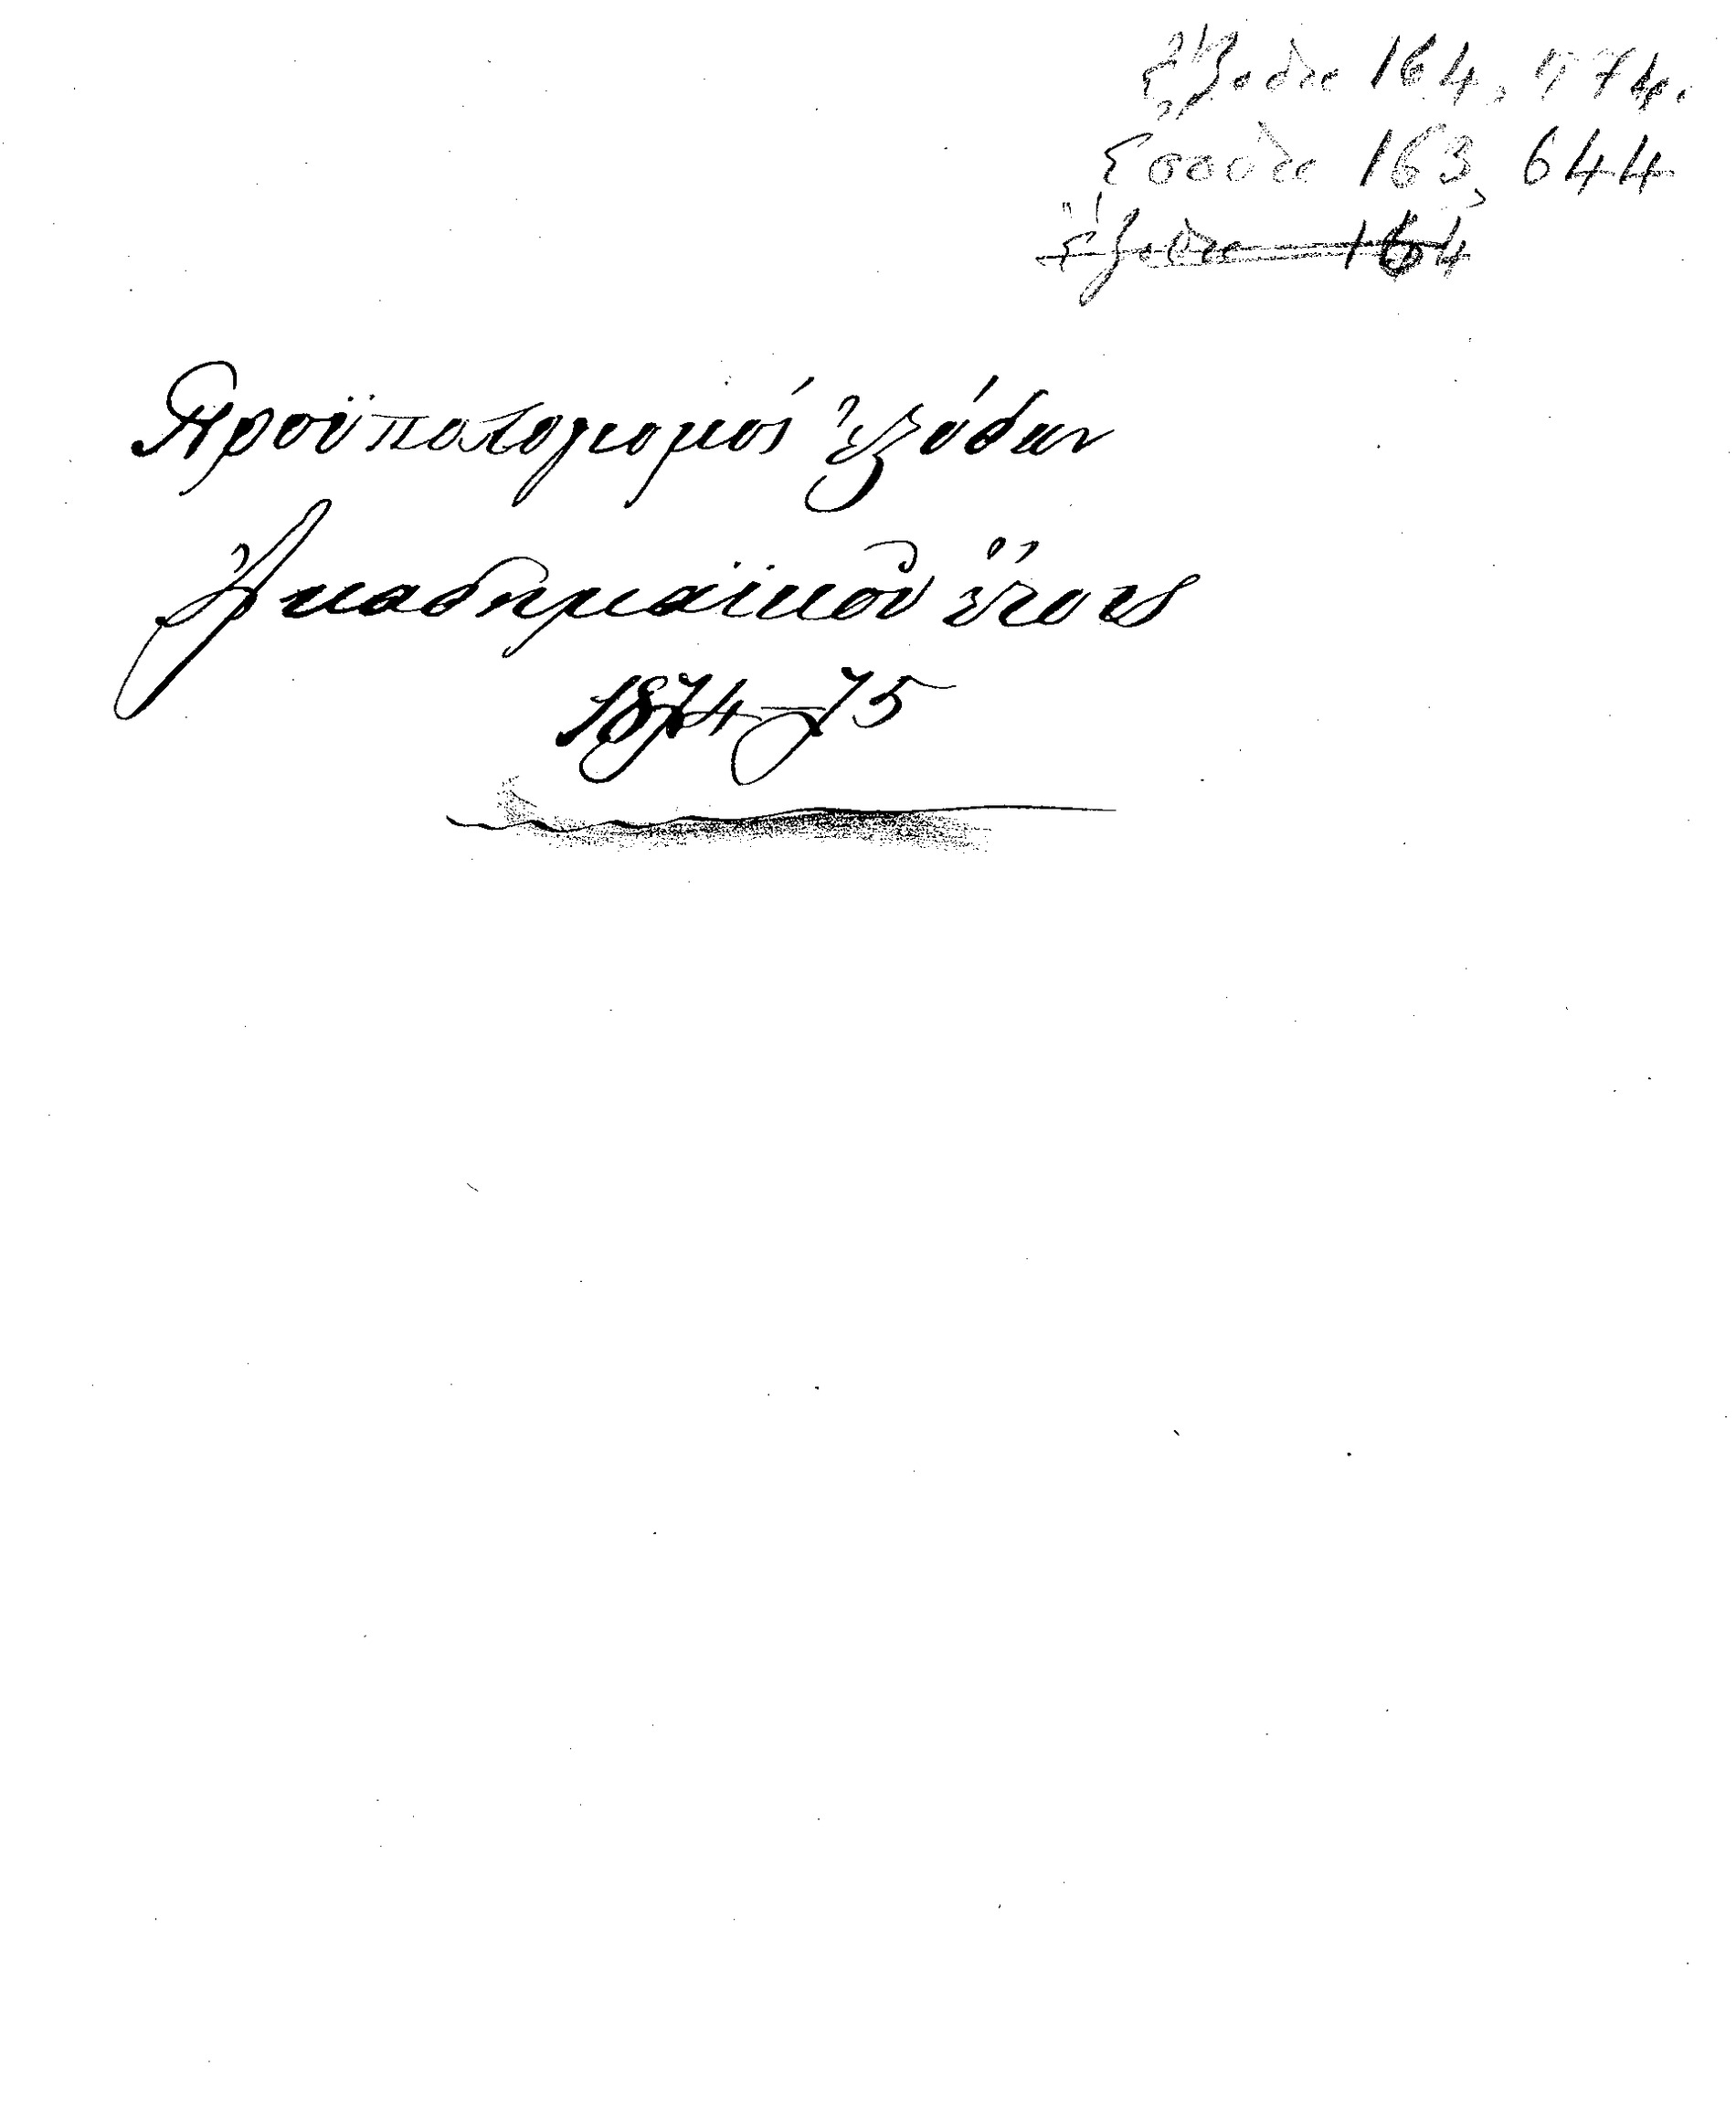 ἔξοδα 164, 774.
ἔσοδα 163, 644
ἔξοδα 164
Προϋπολογισμός ἐξόδων
Ἀκαδημαϊκοῦ ἔτους
1874-75